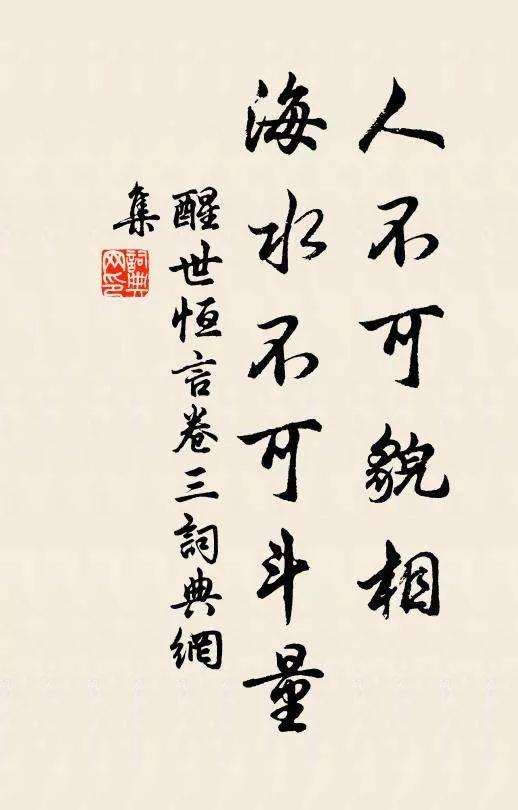 人不可貌相
海水不可斗量
醒世恒言卷三詞典網
集
詞典网印